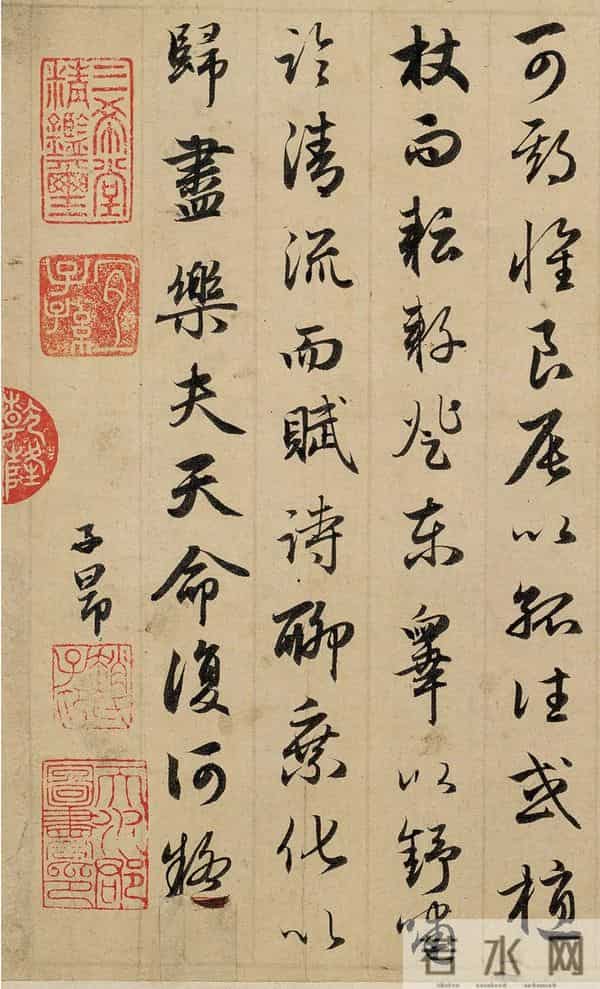 可期懷良辰以孤往或植
杖而耘耔登東皋以舒嘯
臨清流而賦詩聊乘化以
歸盡樂夫天命復何疑
子昂
三希堂精鑑璽
宜子孫
乾隆
趙氏子昂
天水郡圖書印
若水网